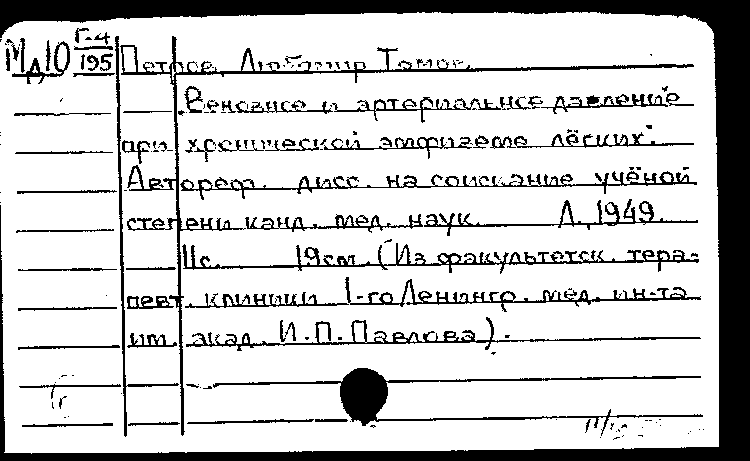 Мд10 Г-4/195 Петров, Любомир Томов.
Венозное и артериальное давление
при хронической эмфиземе лёгких.
Автореф. дисс. на соискание учёной
степени канд. мед. наук. Л., 1949.
11с. 19см. (Из факультетск. тера-
певт. клиники 1-го Ленингр. мед. ин-та
им. акад. И.П.Павлова).